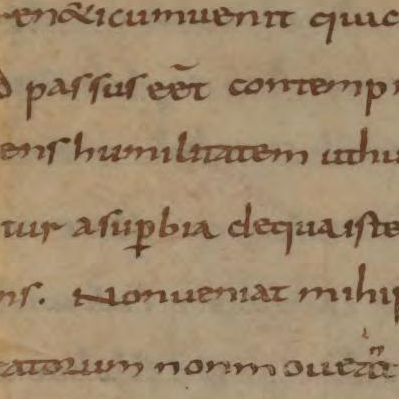 en&icumuenit quic
passus eēt contemp
ens humilitatem uthu
tur asup̄bia dequaiste
ns. Nonueniat mihi
atorum nonm ouea